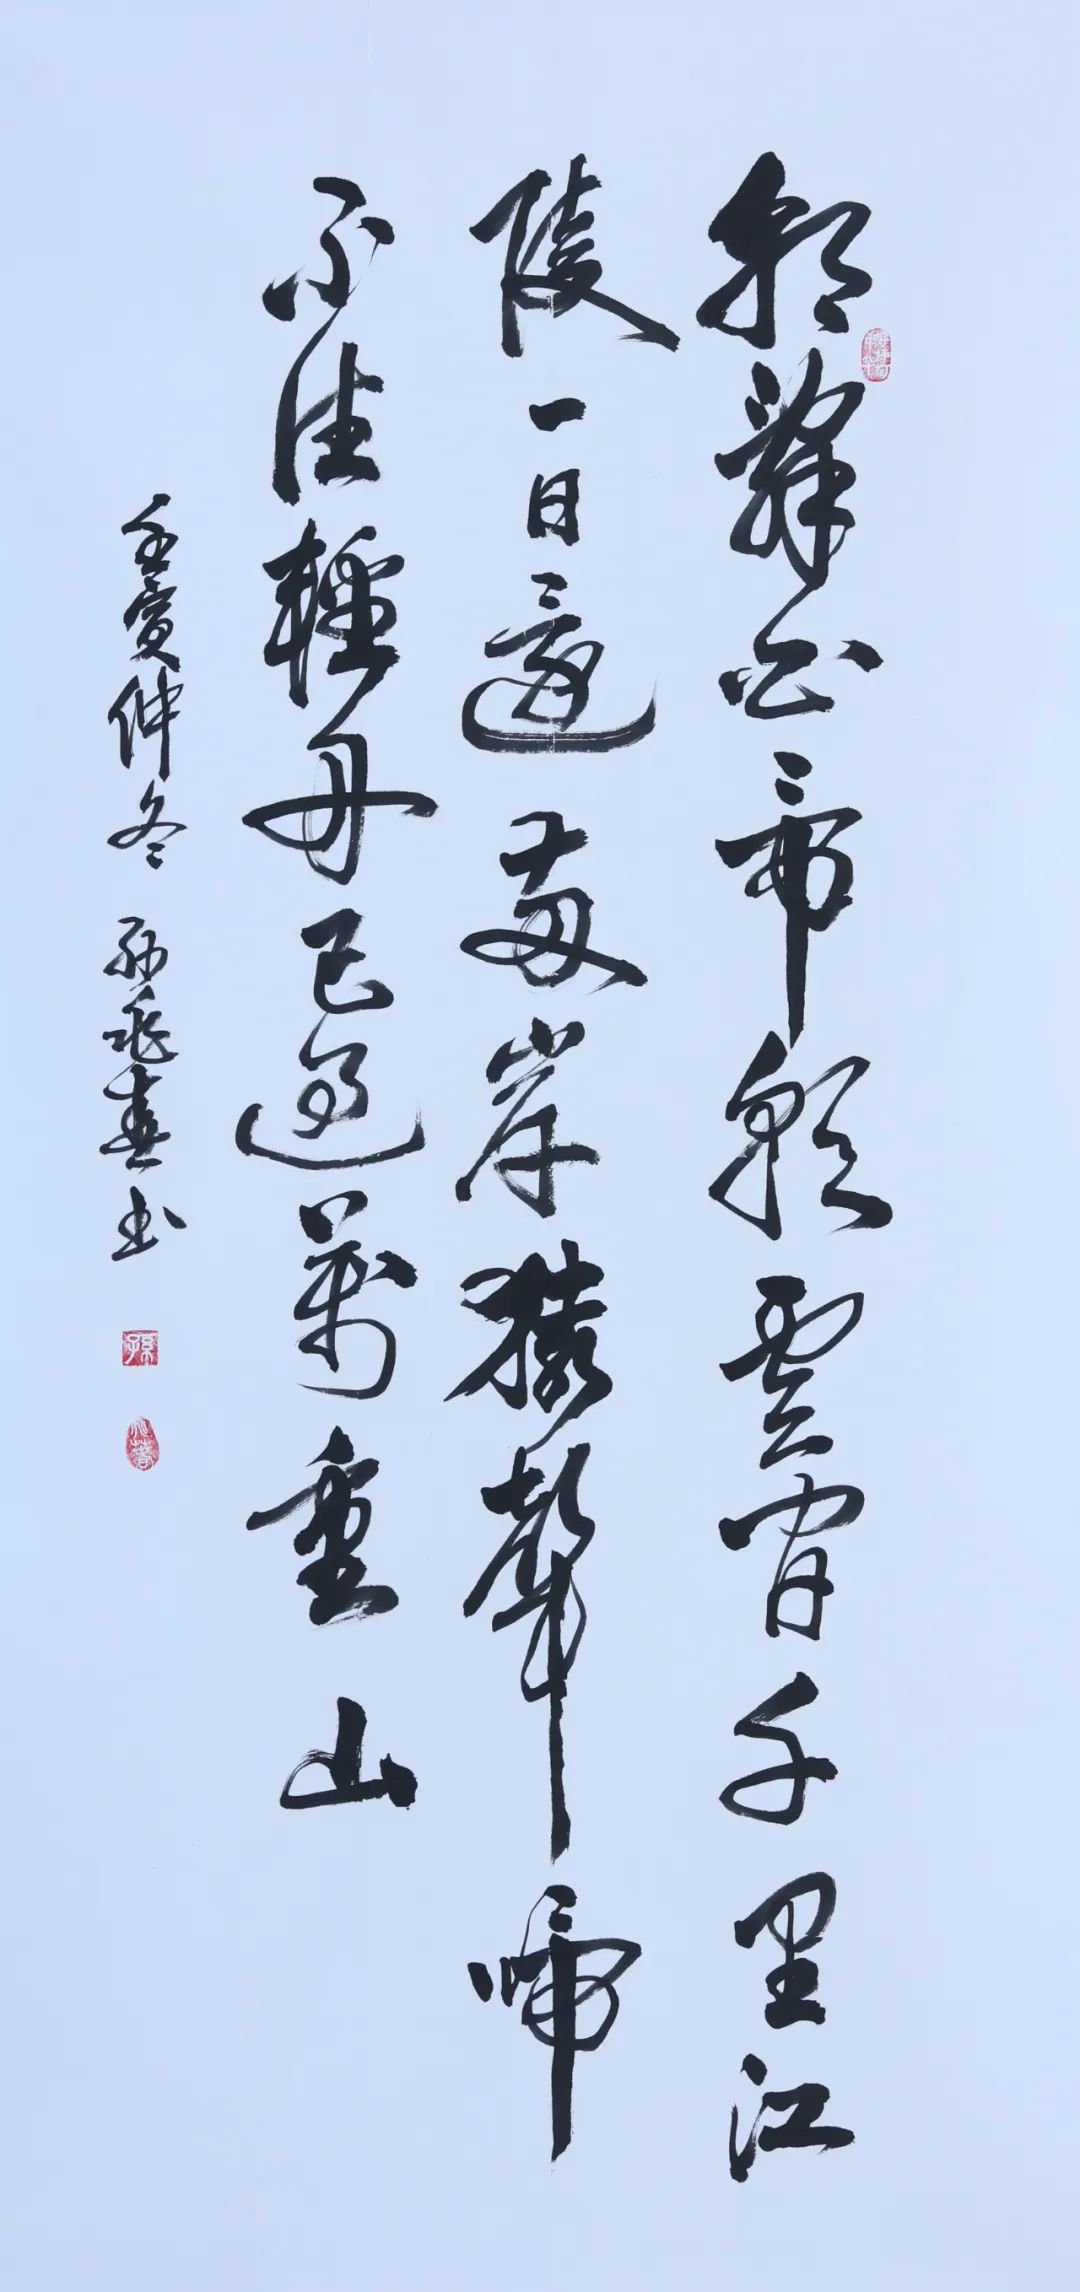 朝辭白帝彩雲間千里江
陵一日還兩岸猿聲啼
不住輕舟已過萬重山
壬寅仲冬 孫兆春書
孫